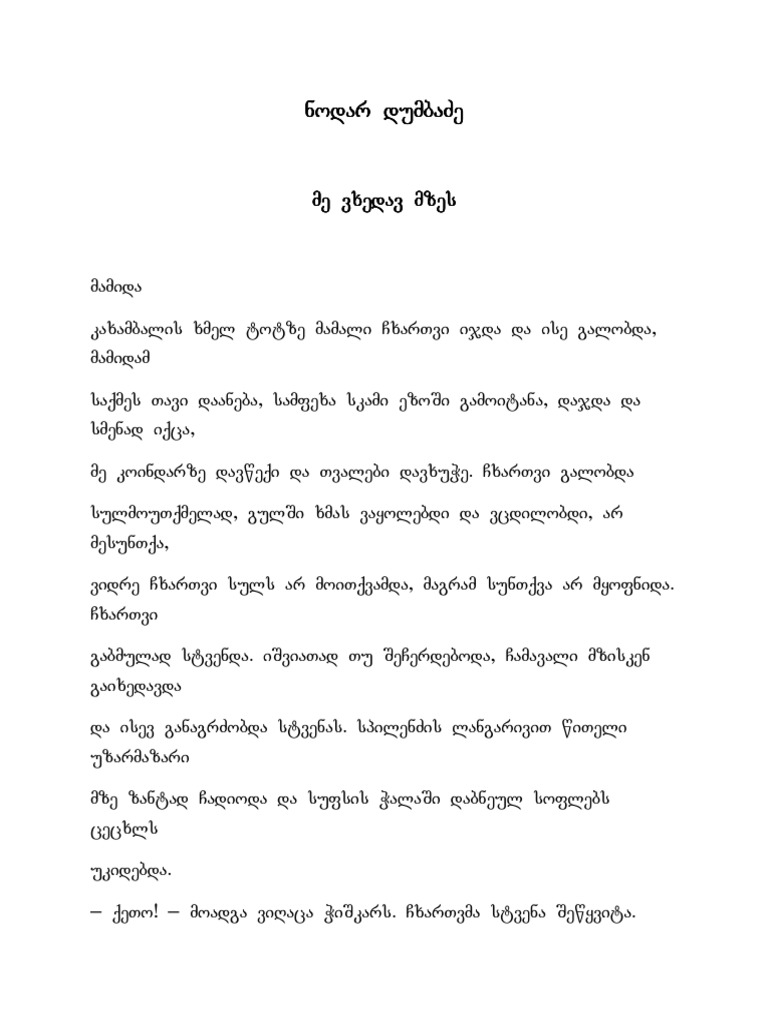 ნოდარ დუმბაძე
მე ვხედავ მზეს
მამიდა
კახამბალის ხმელ ტოტზე მამალი ჩხართვი იჯდა და ისე გალობდა,
მამიდამ
საქმეს თავი დაანება, სამფეხა სკამი ეზოში გამოიტანა, დაჯდა და
სმენად იქცა,
მე კოინდარზე დავწექი და თვალები დავხუჭე. ჩხართვი გალობდა
სულმოუთქმელად, გულში ხმას ვაყოლებდი და ვცდილობდი, არ
მესუნთქა,
ვიდრე ჩხართვი სულს არ მოითქვამდა, მაგრამ სუნთქვა არ მყოფნიდა.
ჩხართვი
გაბმულად სტვენდა. იშვიათად თუ შეჩერდებოდა, ჩამავალი მზისკენ
გაიხედავდა
და ისევ განაგრძობდა სტვენას. სპილენძის ლანგარივით წითელი
უზარმაზარი
მზე ზანტად ჩადიოდა და სუფსის ჭალაში დაბნეულ სოფლებს
ცეცხლს
უკიდებდა.
– ქეთო! – მოადგა ვიღაცა ჭიშკარს. ჩხართვმა სტვენა შეწყვიტა.